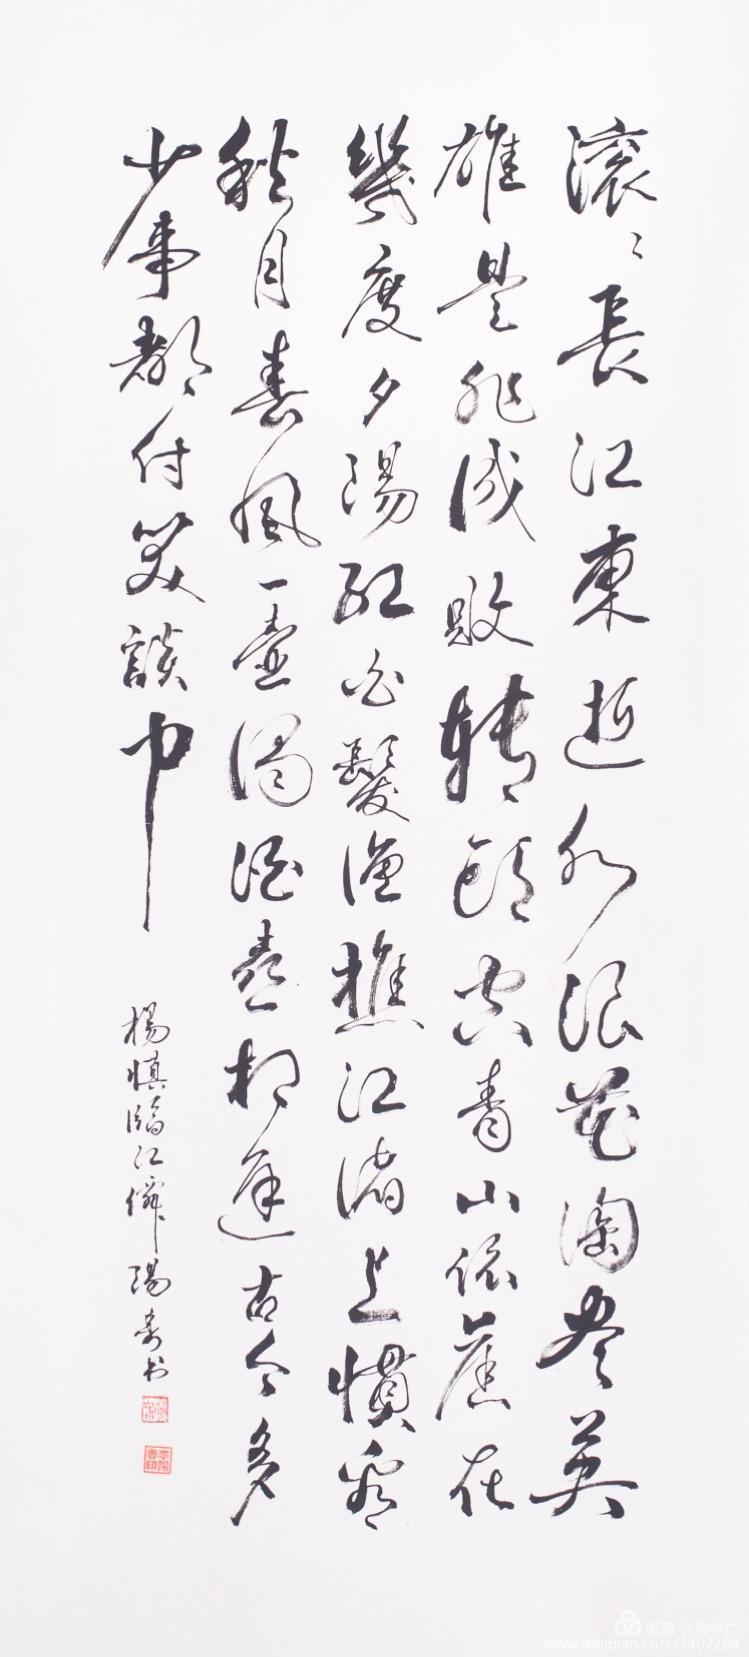 滚〻長江東逝水浪花淘尽英
雄是非成敗转頭空青山依舊在
幾度夕陽红白髮渔樵江渚上慣看
秋月春風一壶濁酒喜相逢古今多
少事都付笑談中
楊慎臨江仙陽春书
美篇 @余学广
www.meipian.cn/c/4407784